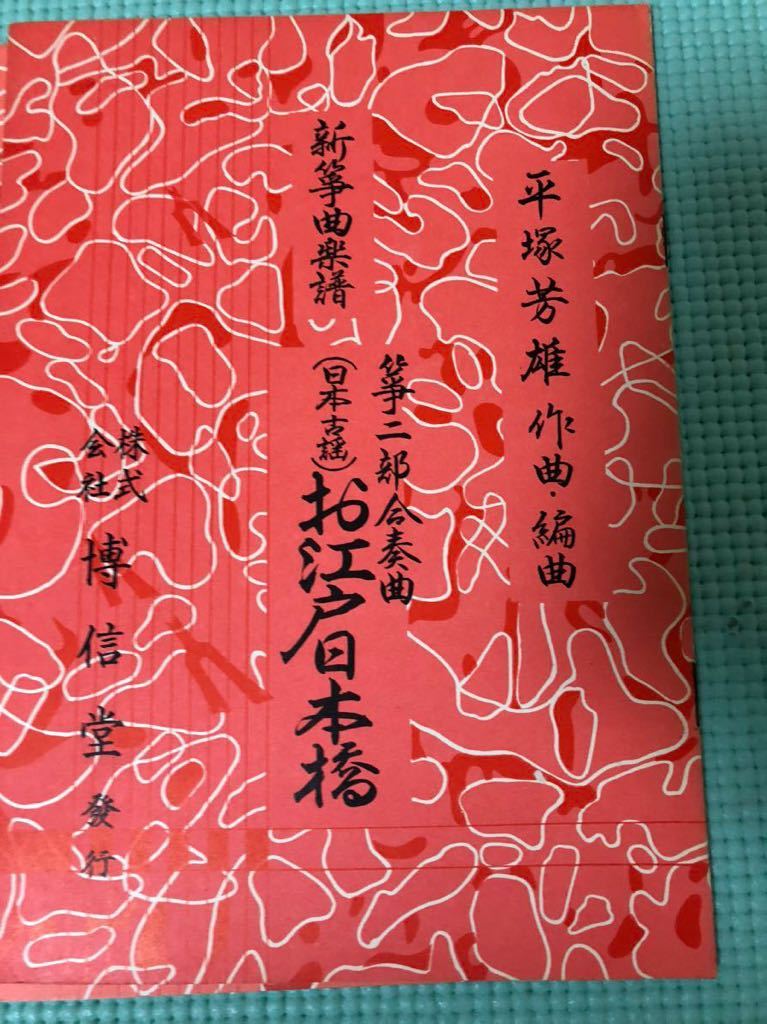 平塚芳雄作曲・編曲
新箏曲楽譜
箏二部合奏曲
(日本古謡)お江戸日本橋
株式会社 博信堂發行